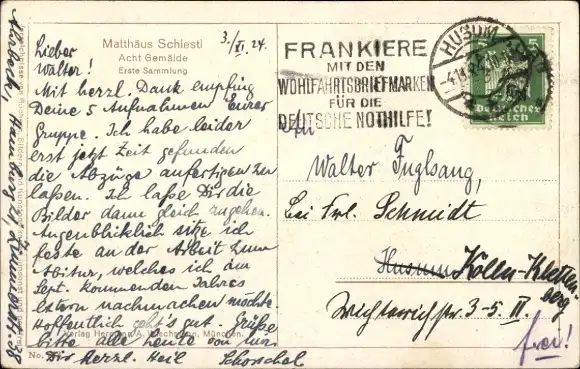 Matthäus Schiestl
Acht Gemälde
Erste Sammlung
3./XI. 24.
Lieber
Walter!
Mit herzl. Dank empfing
Deine 5 Aufnahmen Eurer
Gruppe. Ich habe leider
erst jetzt Zeit gefunden
die Abzüge anfertigen zu
laßen. Ich laße Dir die
Bilder dann gleich zugehen.
Augenblicklich sitze ich
feste an der Arbeit zum
Abitur, welches ich im
Sept. kommenden Jahres
extern nachmachen möchte.
Hoffentlich geht's gut. Grüße
bitte alle heute von mir
Dir herzl. Heil
Verlag Hermann A. Wiechmann, München.
No.
Hamburg
38
HUSUM
FRANKIERE
MIT DEN
WOHLFAHRTSBRIEFMARKEN
FÜR DIE
DEUTSCHE NOTHILFE!
5
Deutsches
Reich
Walter Fuglsang,
bei Frl. Schmidt
Husum Kölln-Klettenberg
3-5. II.
frei!